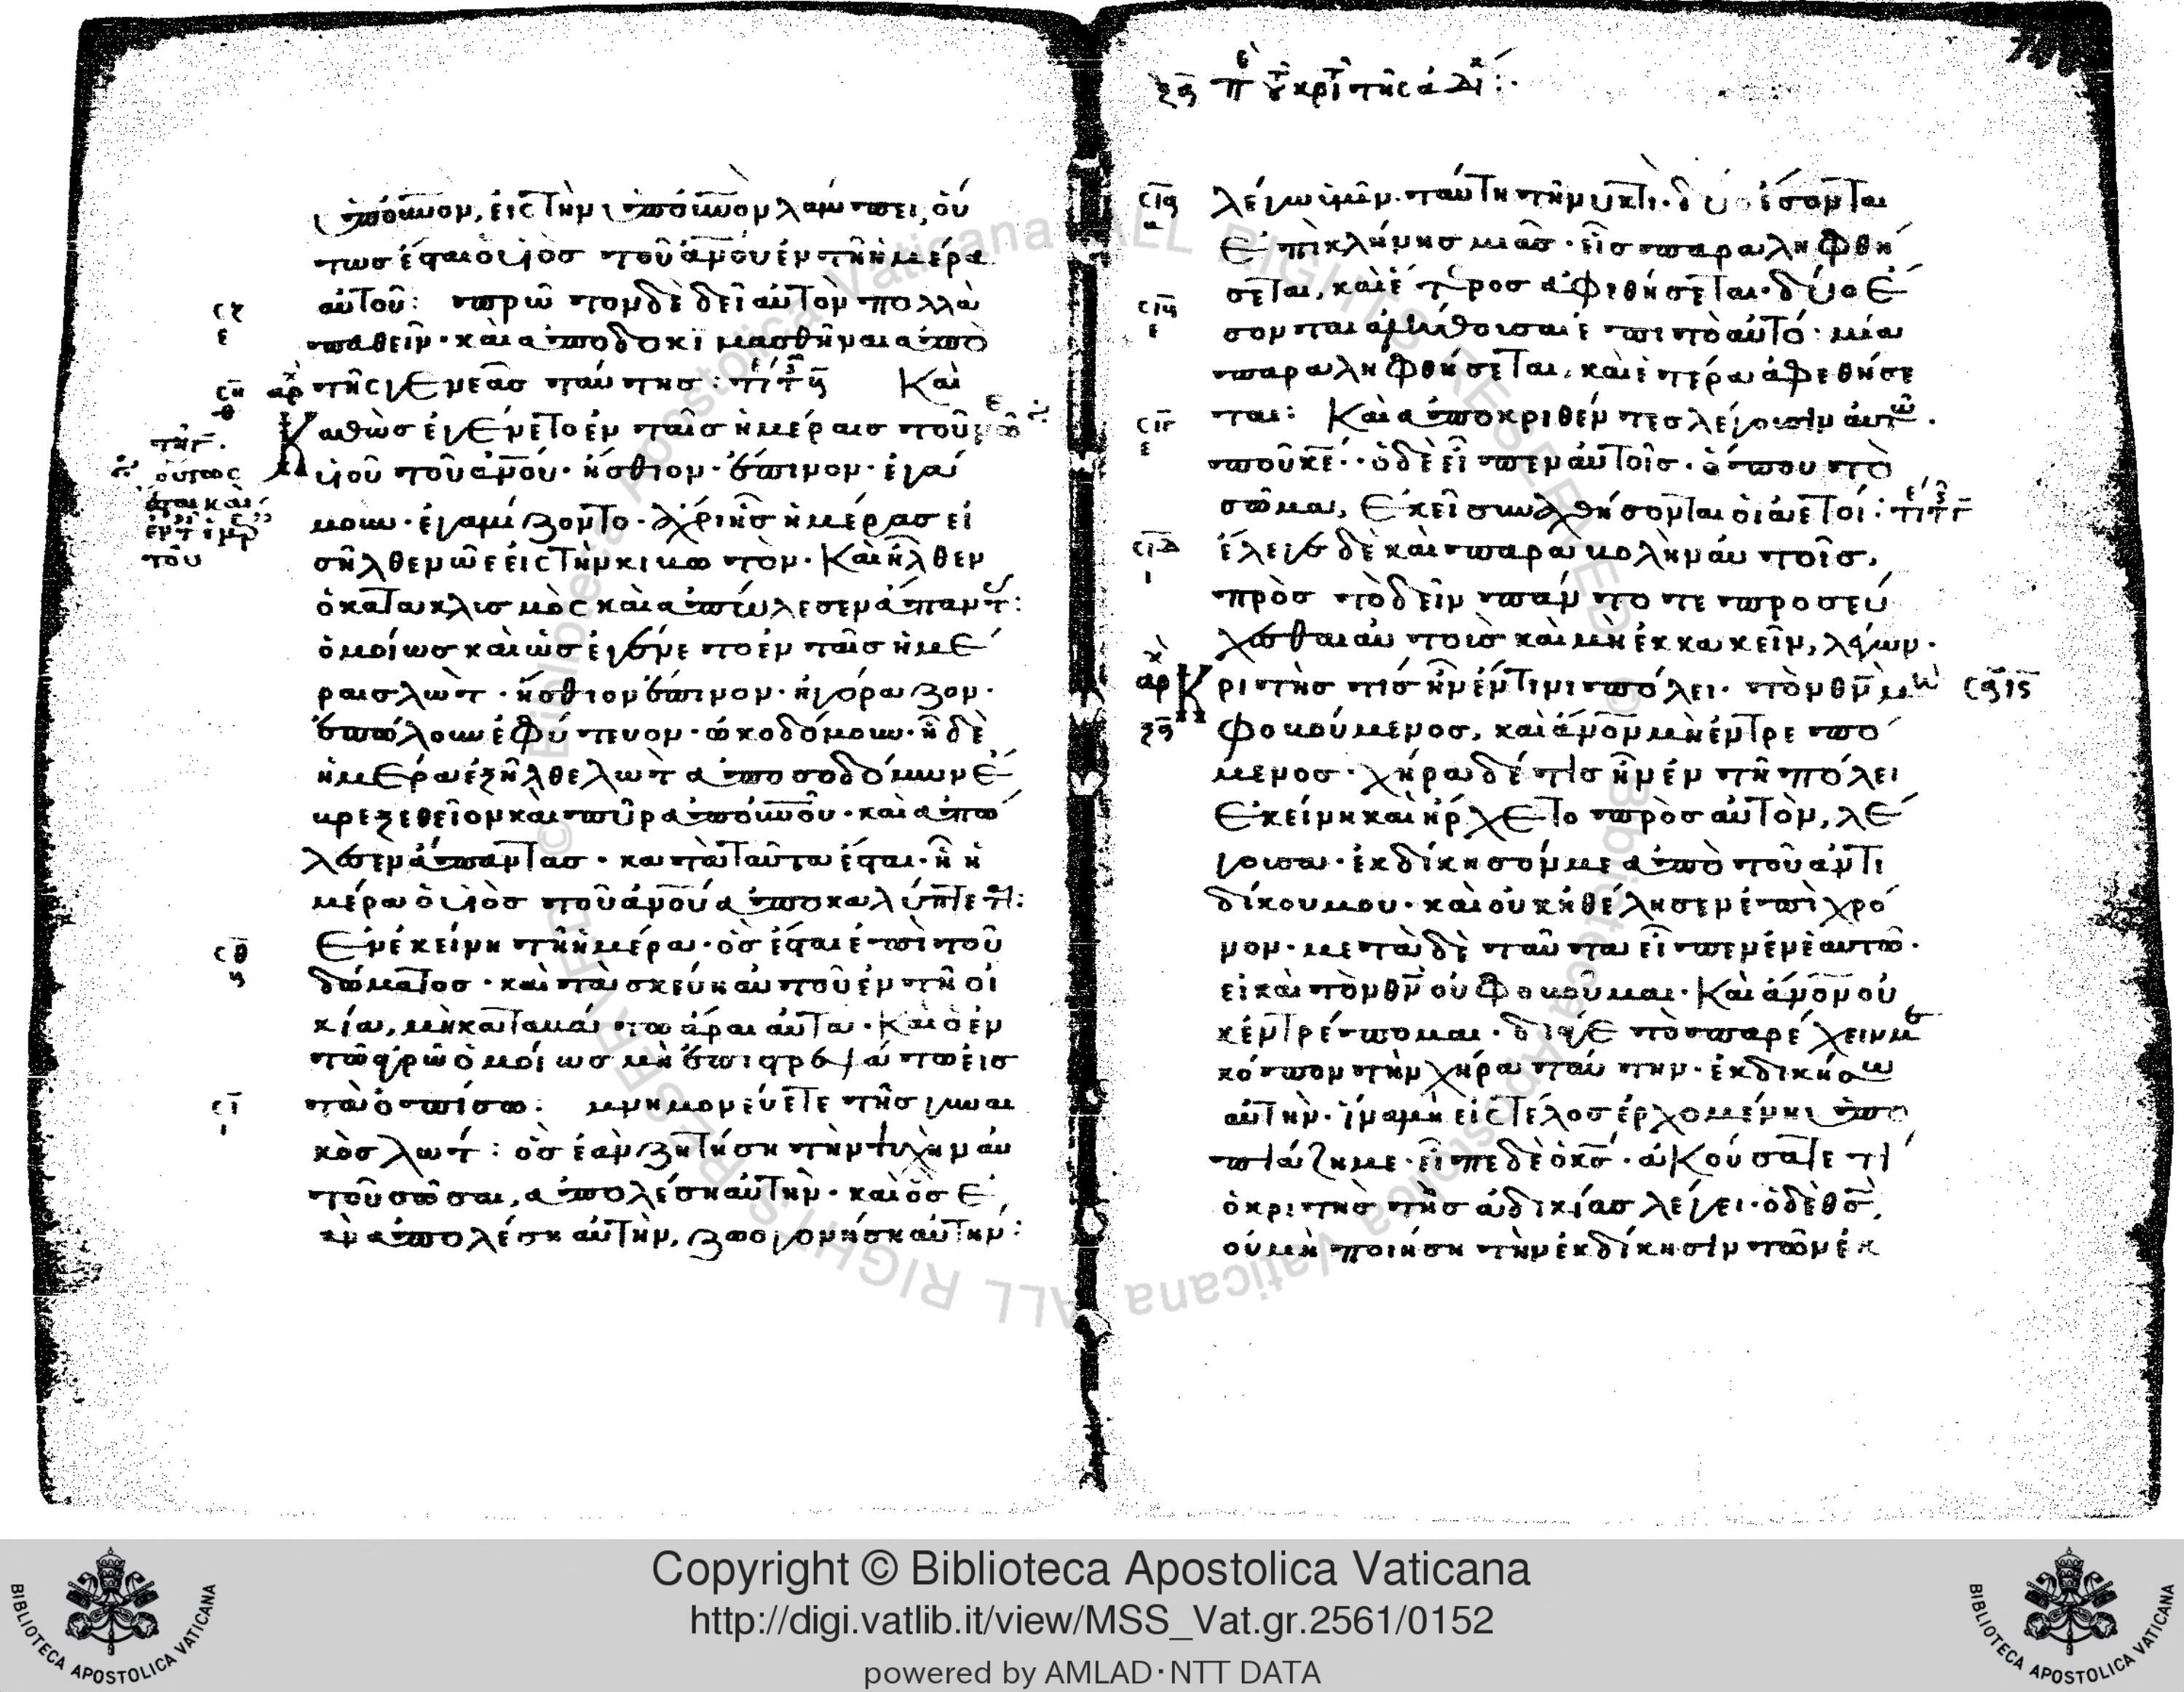 ὑπ' οὐνον, εἰς τὴν ὑπ' οὐνον λάμπει, οὕ
τως ἔσται ὁ υἱὸς τοῦ ἀνου ἐν τῆ ἡμέρα
αὐτοῦ: πρῶτον δὲ δεῖ αὐτὸν πολλὰ
παθεῖν· καὶ ἀποδοκιμασθῆναι ἀπὸ
τῆς γενεᾶς ταύτης: Καὶ
Καθὼς ἐγένετο ἐν ταῖς ἡμέραις τοῦ
υἱοῦ τοῦ ἀνου· ἤσθιον· ἔπινον· ἐγά
μουν· ἐγαμίζοντο· ἄχρι ἧς ἡμέρας εἰ
σῆλθε νῶε εἰς τὴν κιβωτόν· Καὶ ἦλθεν
ὁ κατακλισμὸς καὶ ἀπώλεσεν ἅπαντ:
ὁμοίως καὶ ὡς ἐγένετο ἐν ταῖς ἡμέ
ραις λὼτ· ἤσθιον ἔπινον· ἠγόραζον·
ἐπώλουν ἐφύτευον· ὠκοδόμουν· ἧ δὲ
ἡμέρα ἐξῆλθε λὼτ ἀπὸ σοδόμων ἔ
βρεξε θεῖον καὶ πῦρ ἀπ' οὐνοῦ· καὶ ἀπώ
λεσεν ἅπαντας· κατὰ ταῦτα ἔσται· ἧ ἡ
μέρα ὁ υἱὸς τοῦ ἀνου ἀποκαλύπτετ:
Ἐν ἐκείνη τῆ ἡμέρα· ὃς ἔσται ἐπὶ τοῦ
δώματος· καὶ τὰ σκεύη αὐτοῦ ἐν τῆ οἰ
κία, μὴ καταβάτω ἆραι αὐτά· Καὶ ὁ ἐν
τῶ ἀγρῶ ὁμοίως μὴ ἐπιστρεψάτω εἰς
τὰ ὀπίσω: μνημονεύετε τῆς γυναι
κὸς λώτ: ὃς ἐὰν ζητήση τὴν ψυχὴν αὐ
τοῦ σῶσαι, ἀπολέση αὐτὴν· καὶ ὃς ἐ
ὰν ἀπολέση αὐτὴν, ζωογονήση αὐτήν:
ξβ π τοῦ κριτ τῆς ἀδι:
λέγω ὑμῖν· ταύτη τῆ νυκτὶ· δύο ἔσονται
ἐπὶ κλήνης μιᾶς· εἷς παραληφθή
σεται, καὶ ἕτερος ἀφεθήσεται· δύο ἔ
σονται ἀλήθουσαι ἐπιτοαυτό· μία
παραληφθήσεται, καὶ ἑτέρα ἀφεθήσε
ται: Καὶ ἀποκριθέντες λέγουσιν αὐτῶ·
ποῦ κε· ὁ δὲ εἶπεν αὐτοῖς· ὅπου τὸ
σῶμα, ἐκεῖ συναχθήσονται οἱ ἀετοί:
ἔλεγε δὲ καὶ παραβολὴν αὐτοῖς,
πρὸς τὸ δεῖν πάντοτε προσεύ
χεσθαι αὐτοὺς καὶ μὴ ἐκκακεῖν, λέγων·
Κριτής τίς ἦν ἔν τινι πόλει· τὸν θν μὴ
φοβούμενος, καὶ ἄνον μὴ ἐντρεπό
μενος· χήρα δέ τίς ἦν ἐν τῆ πόλει
ἐκείνη καὶ ἤρχετο πρὸς αὐτὸν, λέ
γουσα· ἐκδίκησόν με ἀπὸ τοῦ ἀντι
δίκου μου· καὶ οὐκ ἠθέλησεν ἐπὶ χρό
νον· μετὰ δὲ ταῦτα εἶπεν ἐν ἑαυτῶ·
εἰ καὶ τὸν θν οὐ φοβοῦμαι· Καὶ ἄνον οὐ
κ ἐντρέπομαι· διά γε τὸ παρέχειν μοι
κόπον τὴν χήραν ταύτην· ἐκδικήσω
αὐτὴν· ἵνα μὴ εἰς τέλος ἐρχομένη ὑπο
πιάζη με· εἶπε δὲ ὁ κς· ἀκούσατε τί
ὁ κριτὴς τῆς ἀδικίας λέγει· ὁ δὲ θς,
οὐ μὴ ποιήση τὴν ἐκδίκησιν τῶν ἐκ
Copyright © Biblioteca Apostolica Vaticana
http://digi.vatlib.it/view/MSS_Vat.gr.2561/0152
powered by AMLAD·NTT DATA
BIBLIOTECA APOSTOLICA VATICANA
BIBLIOTECA APOSTOLICA VATICANA